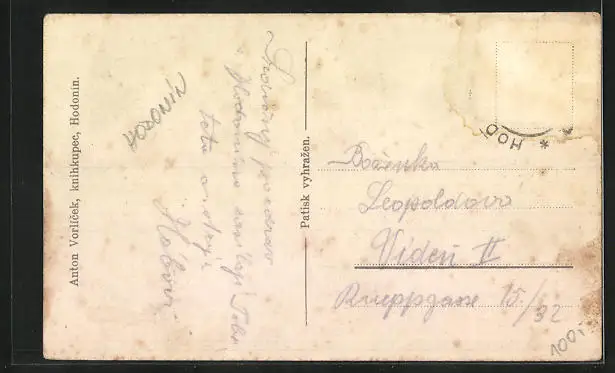 Anton Vorlíček, knihkupec, Hodonín.
HODONÍN
Srdečný pozdrav
z Hodonína zasílají Tobě
teta a strýc
Patisk vyhražen.
* HOD
Boženka
Leopoldova
Vídeň II
Rueppgasse 15./32
100,-